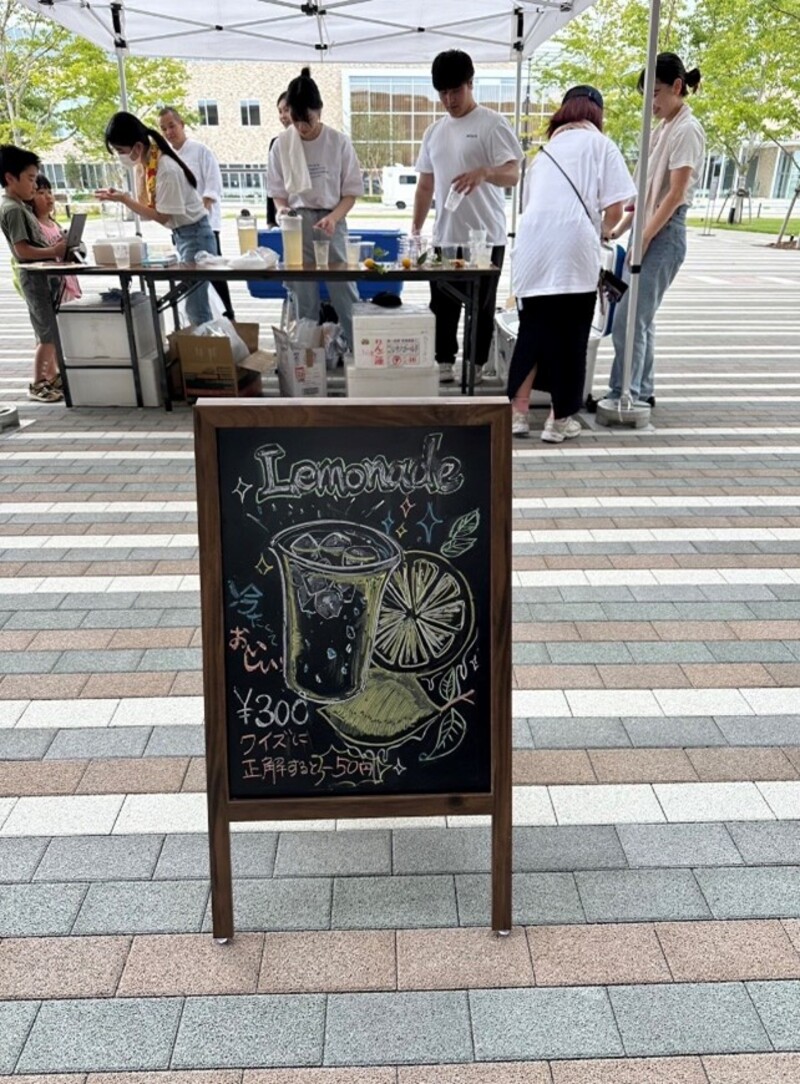 Lemonade
冷たくて
おいしい!
¥300
クイズに
正解すると-50円